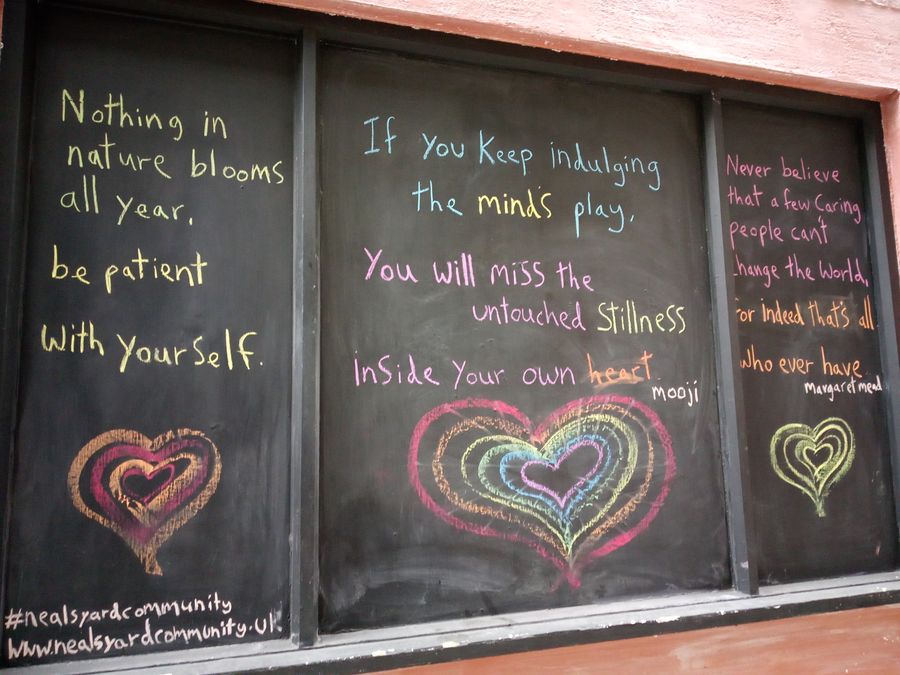 Nothing in
nature blooms
all year.
be patient
With yourself.
#nealsyardcommunity
www.nealsyardcommunity.uk
If you Keep indulging
the mind's play,
You will miss the
untouched Stillness
inside your own heart
mooji
Never believe
that a few Caring
people can't
change the World,
for indeed that's all
who ever have
margaret mead